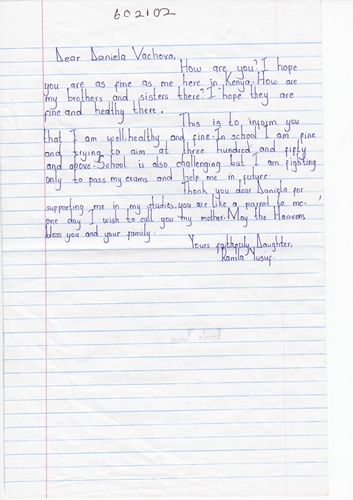 602102
Dear Daniela Vachova,
How are you? I hope
you are as fine as me here in Kenya. How are
my brothers and sisters there? I hope they are
fine and healthy there.
This is to inform you
that I am well,healthy and fine. In school I am fine
and trying to aim at three hundred and fifty
and above. School is also challenging but I am fighting
only to pass my exams and help me in future
Thank you dear Daniela for
supporting me in my studies, you are like a parent to me.
one day I wish to call you my mother. May the Heavens
bless you and your family.
Yours faithfuly Daughter,
Ramla Yusuf